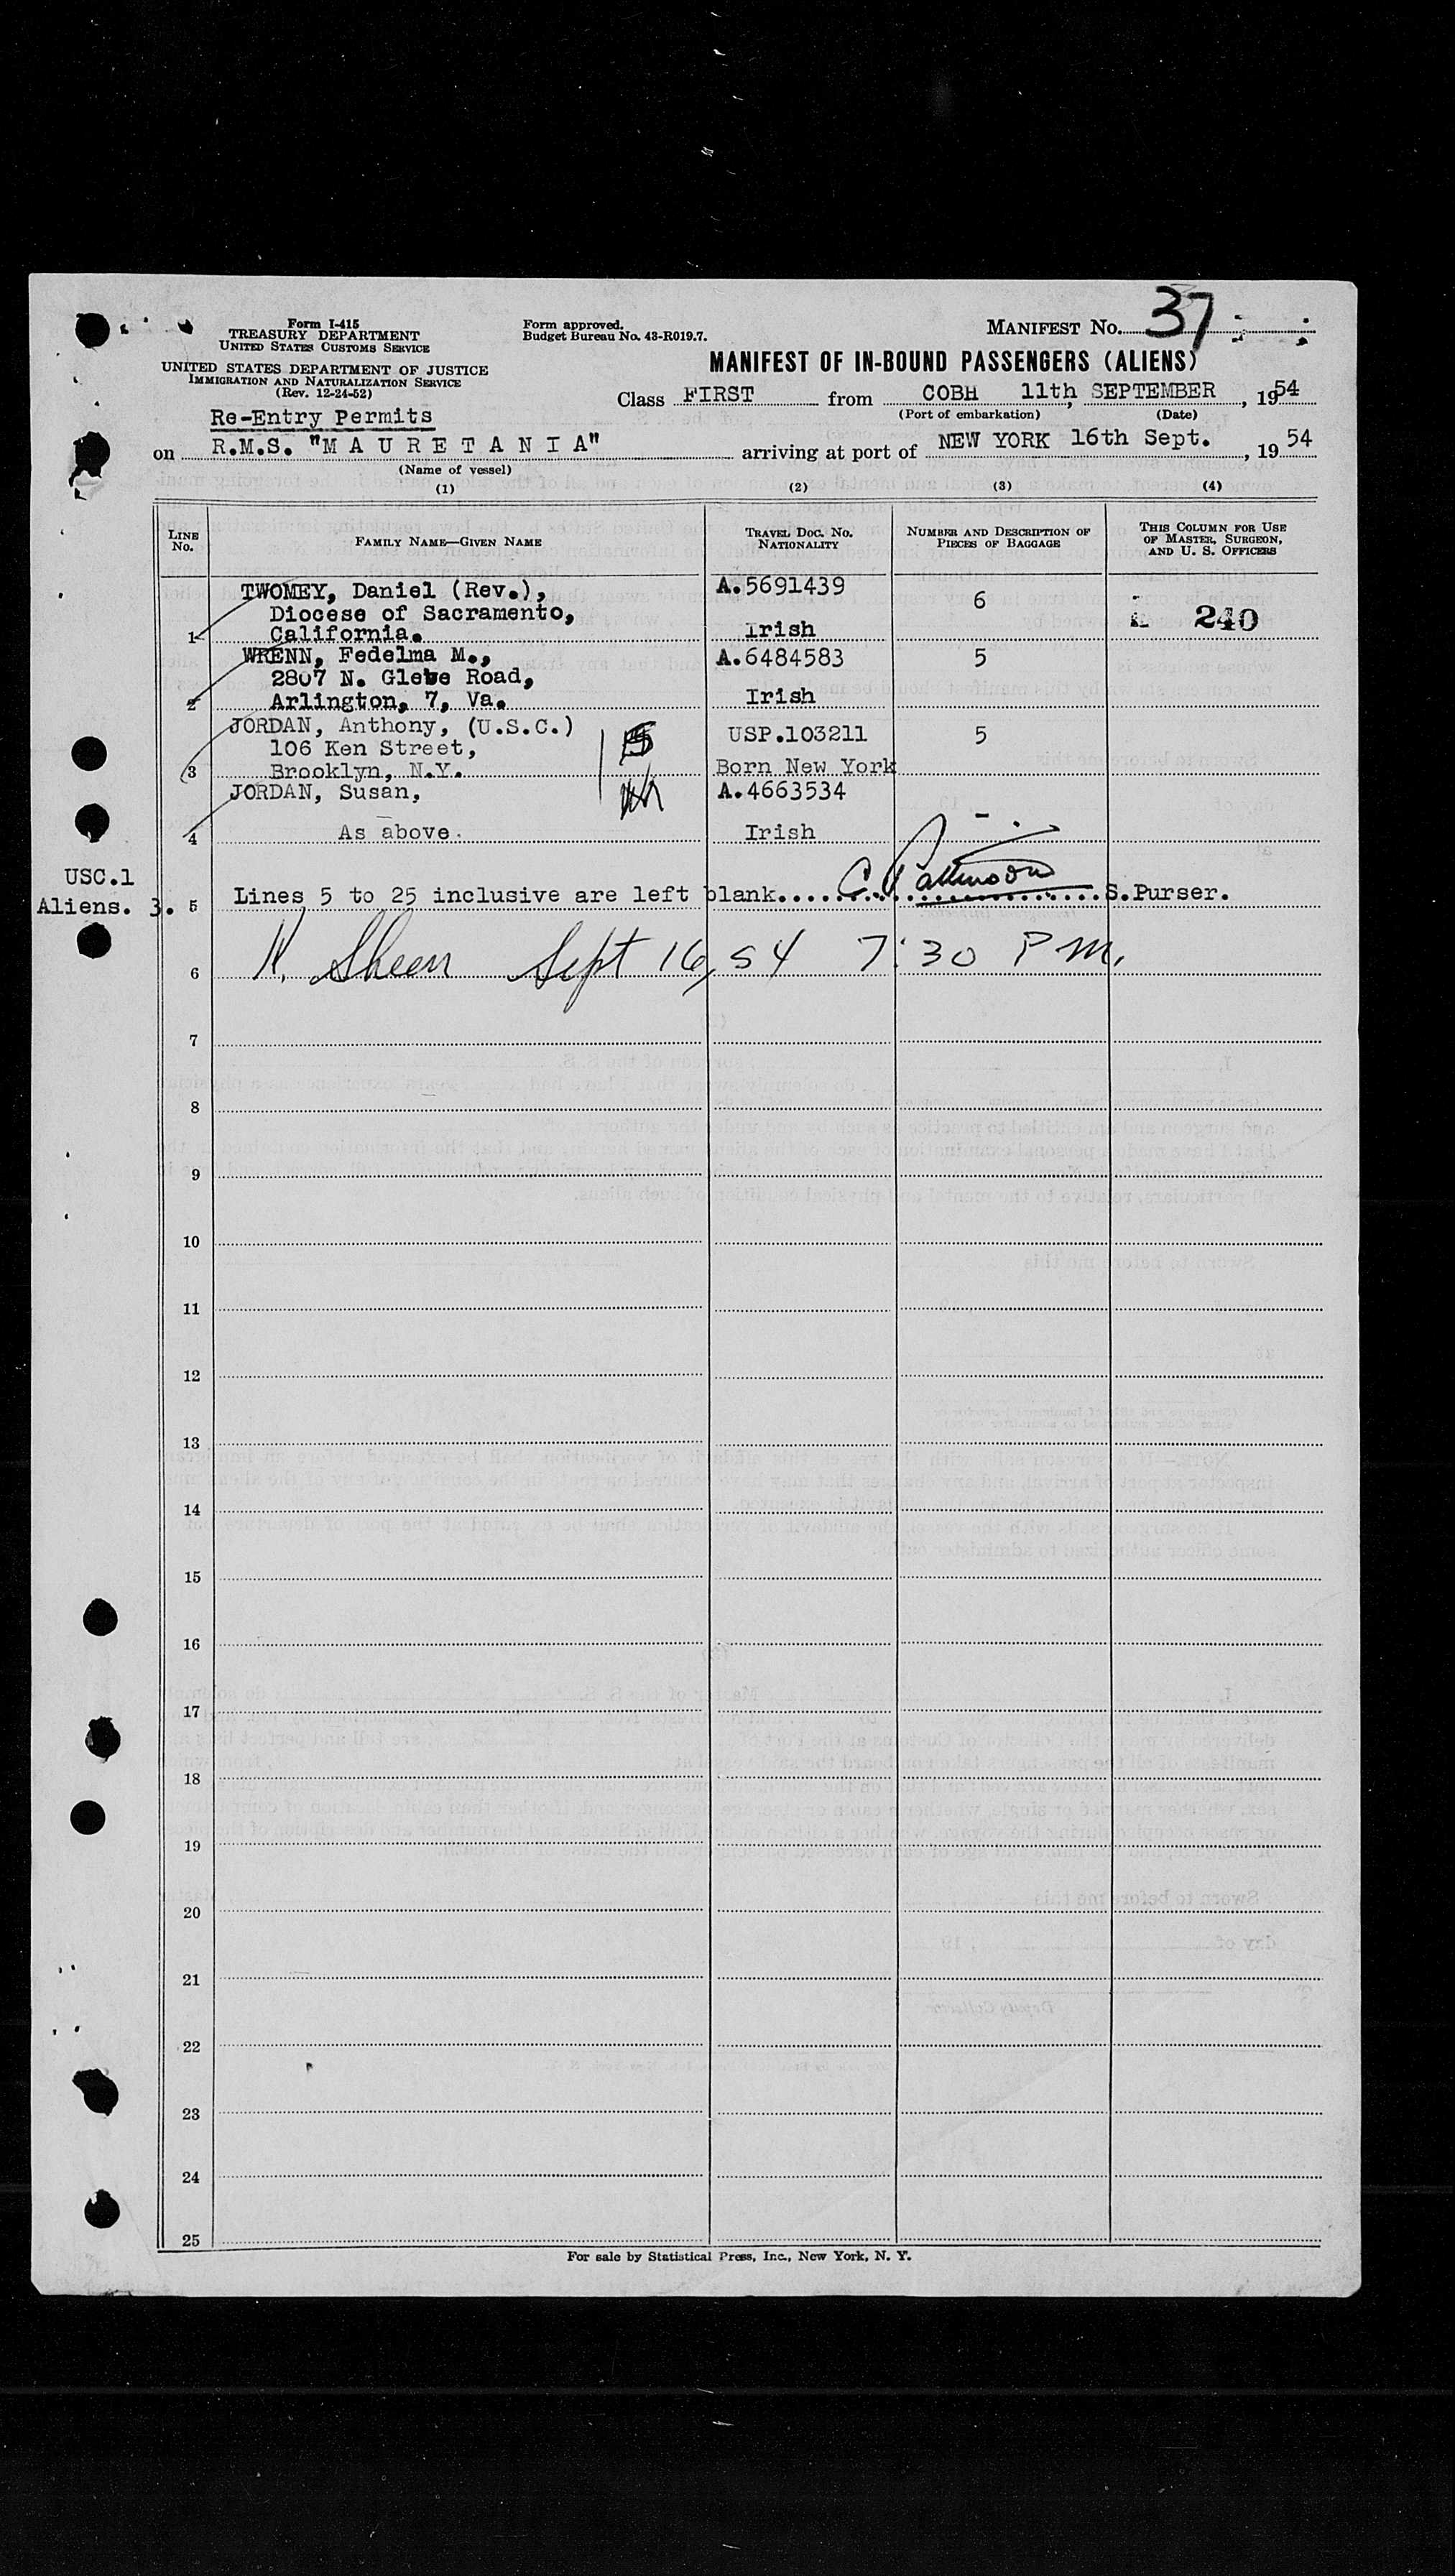 Form I-415
TREASURY DEPARTMENT
UNITED STATES CUSTOMS SERVICE
UNITED STATES DEPARTMENT OF JUSTICE
IMMIGRATION AND NATURALIZATION SERVICE
(Rev. 12-24-52)
Form approved.
Budget Bureau No. 43-R019.7.
MANIFEST No. 37
MANIFEST OF IN-BOUND PASSENGERS (ALIENS)
Class FIRST from COBH 11th, SEPTEMBER, 1954
(Port of embarkation) (Date)
Re-Entry Permits
on R.M.S. "M A U R E T A N I A" arriving at port of NEW YORK 16th Sept., 19 54
(Name of vessel)
(1) (2) (3) (4)
LINE No. FAMILY NAME—GIVEN NAME TRAVEL DOC. NO. NATIONALITY NUMBER AND DESCRIPTION OF PIECES OF BAGGAGE THIS COLUMN FOR USE OF MASTER, SURGEON, AND U. S. OFFICERS
TWOMEY, Daniel (Rev.), A.5691439
Diocese of Sacramento, 6 240
1 California. Irish
WRENN, Fedelma M., A.6484583 5
2807 N. Glebe Road,
2 Arlington, 7, Va. Irish
JORDAN, Anthony, (U.S.C.) USP.103211 5
106 Ken Street,
3 Brooklyn, N.Y. Born New York
JORDAN, Susan, A.4663534
4 As above. Irish -
USC.1
Aliens. 3. 5 Lines 5 to 25 inclusive are left blank. S.Purser.
6 Sheen Sept 16, 54 7:30 PM.
7
8
9
10
11
12
13
14
15
16
17
18
19
20
21
22
23
24
25
For sale by Statistical Press, Inc., New York, N. Y.